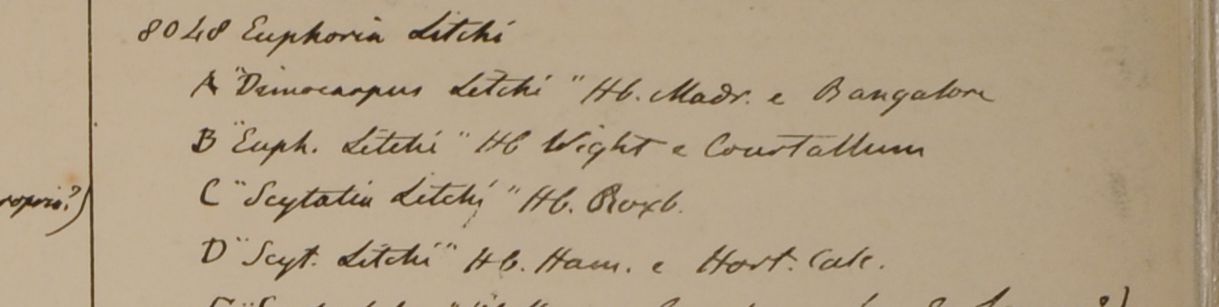 8048 Euphoria Litchi
A "Dimocarpus Litchi" Hb. Madr. e Bangalore
B "Euph. Litchi" Hb Wight e Courtallum
C "Scytalia Litchi" Hb. Roxb.
ropria?)
D "Scyt. Litchi" Hb. Ham. e Hort. Calc.